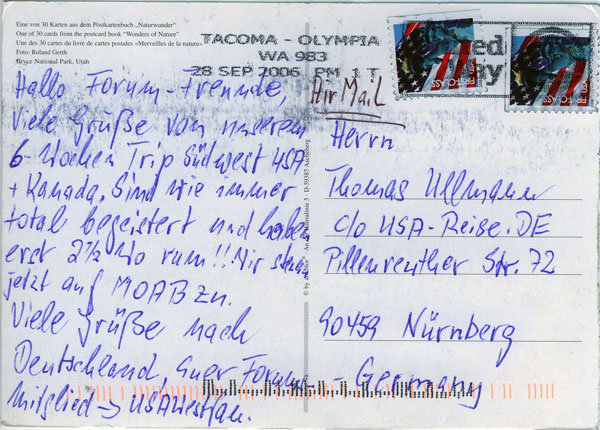 Eine von 30 Karten aus dem Postkartenbuch „Naturwunder"
One of 30 cards from the postcard book "Wonders of Nature"
Une des 30 cartes du livre de cartes postales «Merveilles de la nature»
Foto: Roland Gerth
Bryce National Park, Utah
TACOMA - OLYMPIA
WA 983
28 SEP 2006 PM 1 T
Hallo Forum-Freunde,
Viele Grüße von unserem
6-Wochen Trip Südwest USA
+ Kanada. Sind wie immer
total begeistert und haben
erst 2½ Wo rum!! Wir
jetzt auf MOAB zu.
Viele Grüße nach
Deutschland, Euer Forums-
mitglied → USAWestfan.
Air Mail
Herrn
Thomas Ullmann
c/o USA-Reise.DE
Pillenreuther Str. 72
90459 Nürnberg
- Germany